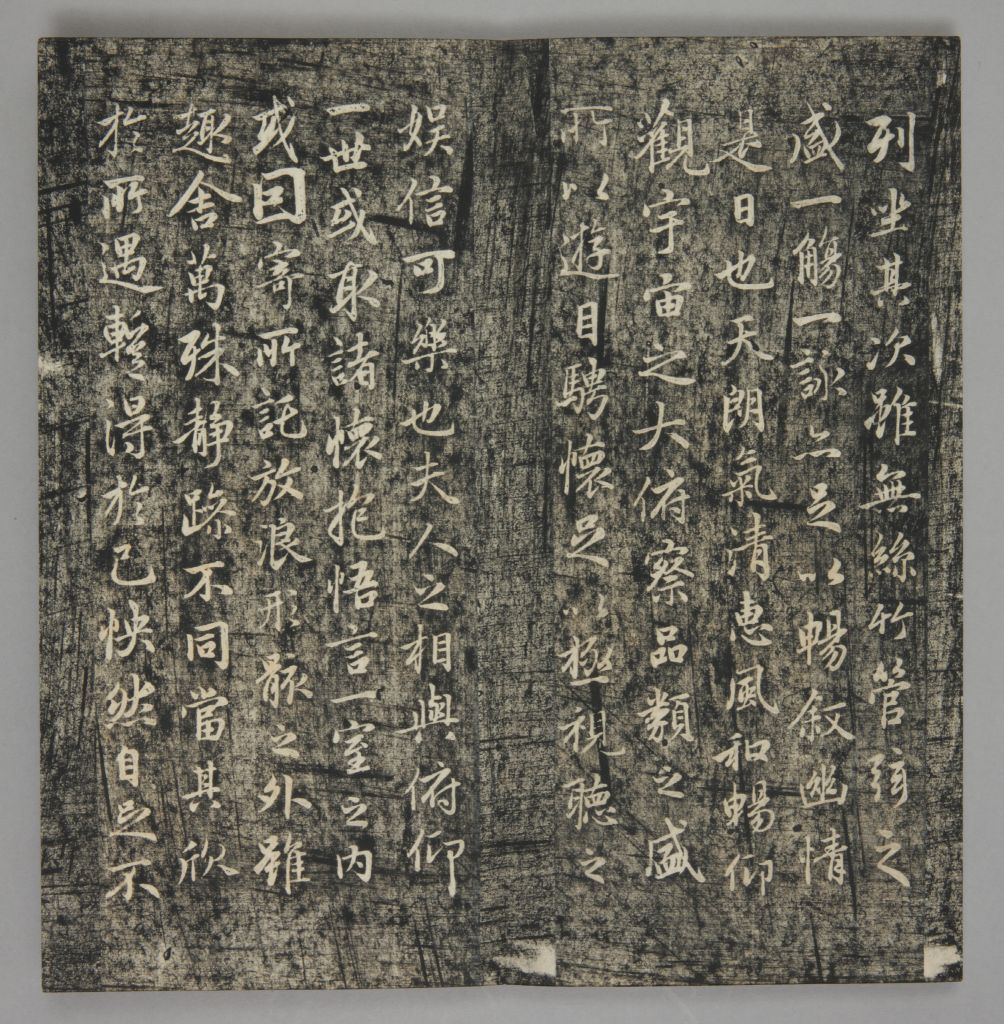 列坐其次雖無絲竹管弦之
盛一觴一詠亦足以暢敘幽情
是日也天朗氣清惠風和暢仰
觀宇宙之大俯察品類之盛
所以遊目騁懷足以極視聽之
娛信可樂也夫人之相與俯仰
一世或取諸懷抱悟言一室之內
或因寄所託放浪形骸之外雖
趣舍萬殊静躁不同當其欣
於所遇暫得於己怏然自足不